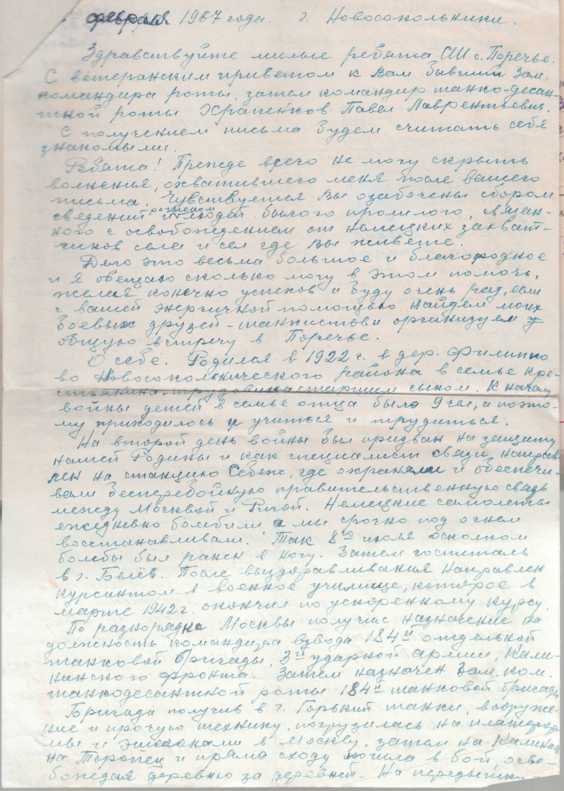 февраля 1987 года. г. Новосокольники.
Здравствуйте милые ребята СШ с. Поречье.
С ветеранским приветом к Вам бывший зам.
командира роты, затем командир танко-десан-
тной роты Храпенков Павел Лаврентьевич.
С получением письма будем считать себя
знакомыми.
Ребята! Прежде всего не могу скрыть
волненья, охватившего меня после вашего
письма. Чувствуется Вы озабочены сбором
сведений о людях былого прошлого, связан-
ного с освобождением от немецких захват-
чиков села и сел где Вы живете.
Дело это весьма большое и благородное
и я обещаю сколько могу в этом помочь,
желая конечно успехов и буду очень рад, если
с вашей энергичной помощью найдем моих
боевых друзей-танкистов и организуем
общую встречу в Поречье.
О себе. Родился в 1922 г. в дер. Филипко
во Новосокольнического района в семье кре-
стьянина старшим сыном. К началу
войны детей в семье отца было 9 чел, а поэто-
му приходилось и учиться и трудиться.
На второй день войны был призван на защиту
нашей Родины и как специалист связи направ
лен на станцию Себеж, где охраняли и обеспечи-
вали бесперебойную правительственную связь
между Москвой и Ригой. Немецкие самолеты
ежедневно бомбили а мы срочно под огнем
восстанавливали. Так 8го июля осколком
бомбы был ранен в ногу. Затем госпиталь
в г. Белев. После выздоравливания направлен
курсантом в военное училище, которое в
марте 1942 г. окончил по ускоренному курсу.
По разнорядке Москвы получил назначение на
должность командира взвода 184й отдельной
танковой бригады, 3й ударной армии, Кали-
нинского фронта. Затем назначен Зам. ком.
танкодесантной роты 184й танковой бригады
Бригада получив в г. Горький танки, вооруже-
ние и прочую технику, погрузилась на платфор
мы и эшелонами в Москву, затем на Калинин
на Торопец и прямо сходу пошла в бой, осво-
бождая деревню за деревней. На передышке